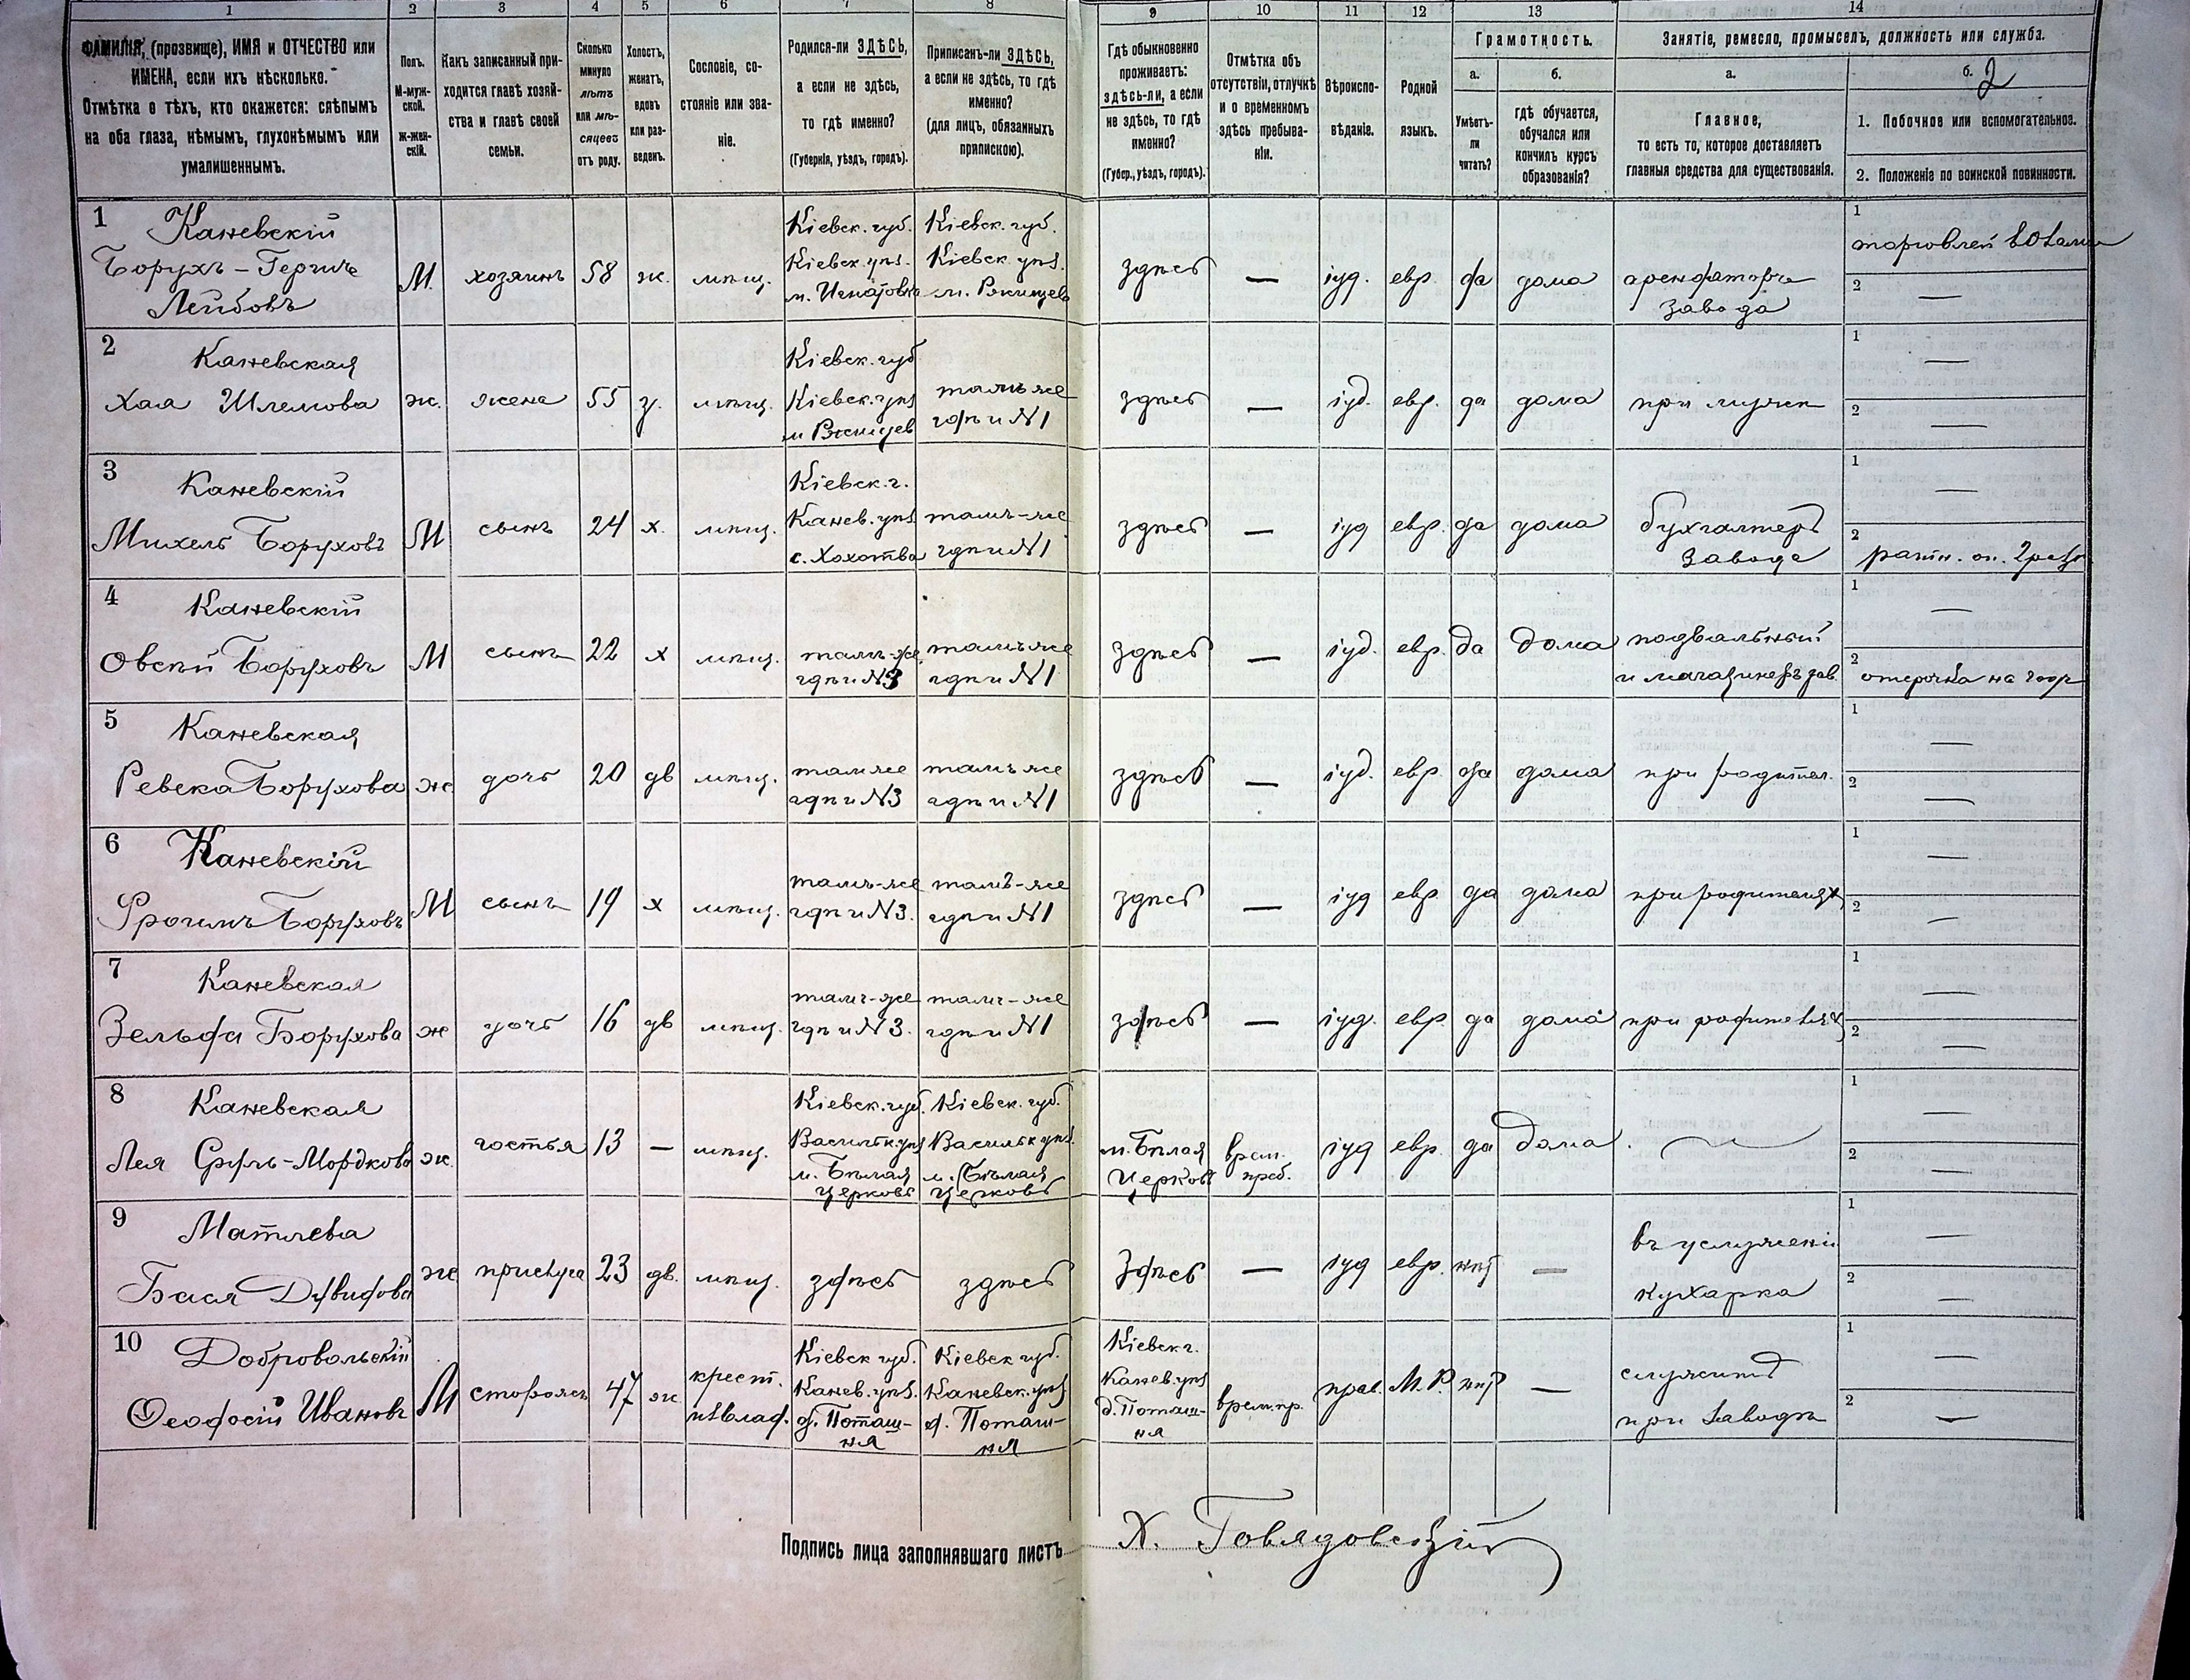 1 2 3 4 5 6 7 8 9 10 11 12 13 14
ФАМИЛІЯ, (прозвище), ИМЯ и ОТЧЕСТВО или
ИМЕНА, если ихъ нѣсколько.
Отмѣтка о тѣхъ, кто окажется: слѣпымъ
на оба глаза, нѣмымъ, глухонѣмымъ или
умалишеннымъ.
Полъ.
М-муж-
ской.
Ж-жен-
скій.
Какъ записанный при-
ходится главѣ хозяй-
ства и главѣ своей
семьи.
Сколько
минуло
лѣтъ
или мѣ-
сяцевъ
отъ роду.
Холостъ,
женатъ,
вдовъ
или раз-
веденъ.
Сословіе, со-
стояніе или зва-
ніе.
Родился-ли ЗДѢСЬ,
а если не здѣсь,
то гдѣ именно?
(Губернія, уѣздъ, городъ).
Приписанъ-ли ЗДѢСЬ,
а если не здѣсь, то гдѣ
именно?
(для лицъ, обязанныхъ
припискою).
Гдѣ обыкновенно
проживаетъ:
здѣсь-ли, а если
не здѣсь, то гдѣ
именно?
(Губер., уѣздъ, городъ).
Отмѣтка объ
отсутствіи, отлучкѣ
и о временномъ
здѣсь пребыва-
ніи.
Вѣроиспо-
вѣданіе.
Родной
языкъ.
Грамотность.
а.
Умѣетъ-
ли
читать?
б.
гдѣ обучается,
обучался или
кончилъ курсъ
образованія?
Занятіе, ремесло, промыселъ, должность или служба.
а.
Главное,
то есть то, которое доставляетъ
главныя средства для существованія.
б. 2
1. Побочное или вспомогательное.
2. Положеніе по воинской повинности.
1 Каневскій
Борухъ-Гершъ
Лейбовъ
М. хозяинъ 58 ж. мѣщ.
Кіевск. губ.
Кіевск. уѣз.
м. Игнатовка
Кіевск. губ.
Кіевск. уѣз.
м. Ржищевъ
здѣсь — іуд. евр. да дома
арендаторъ
завода
1 торговлей
2 —
2 Каневская
Хая Шлемова
ж. жена 55 з. мѣщ.
Кіевск. губ
Кіевск. уѣз
м Ржищев
тамъ же
гдѣ и №1
здѣсь — іуд. евр. да дома при мужѣ
1 —
2 —
3 Каневскій
Михель Боруховъ
М сынъ 24 х. мѣщ.
Кіевск. г.
Канев. уѣз.
с. Хохотва
тамъ-же
гдѣ и №1
здѣсь — іуд евр. да дома
бухгалтеръ
завода
1 —
2 ратн. оп. 2 разр
4 Каневскій
Овсѣй Боруховъ
М сынъ 22 х мѣщ.
тамъ-же
гдѣ и №3
тамъ же
гдѣ и №1
здѣсь — іуд. евр. да дома
подвальный
и магазинеръ зав.
1 —
2 отсрочка на
5 Каневская
Ревека Борухова
ж дочь 20 дв мѣщ.
там же
гдѣ и №3
тамъ же
гдѣ и №1
здѣсь — іуд. евр. да дома при родител.
1 —
2 —
6 Каневскій
Фроимъ Боруховъ
М сынъ 19 х мѣщ.
тамъ-же
гдѣ и №3.
тамъ-же
гдѣ и №1
здѣсь — іуд евр да дома при родителях
1 —
2 —
7 Каневская
Зельда Борухова
ж дочь 16 дв мѣщ.
тамъ-же
гдѣ и №3.
тамъ-же
гдѣ и №1
здѣсь — іуд. евр. да дома при родителях
1 —
2 —
8 Каневская
Лея Сруль-Мордкова
ж. гостья 13 — мѣщ.
Кіевск. губ.
Васильк уѣз
м. Бѣлая
Церковь
Кіевск. губ.
Васильк уѣз.
м. Бѣлая
Церковь
м. Бѣлая
Церковь
врем.
преб.
іуд евр. да дома.
1 —
2 —
9 Матлева
Бася Дувидова
ж прислуга 23 дв. мѣщ. здѣсь здѣсь здѣсь — іуд евр. нѣт —
въ услуженіи
кухарка
1 —
2 —
10 Добровольскій
Феодосій Ивановъ
М сторожъ 47 ж.
крест.
Кіевск губ.
Канев. уѣз.
д. Поташ-
ня
Кіевск губ.
Каневск. уѣз
д. Поташ-
ня
Кіевск г.
Канев. уѣз
д. Поташ-
ня
врем. пр. прав. М. Р. нѣт —
служитъ
при заводѣ
1 —
2 —
Подпись лица заполнявшаго листъ